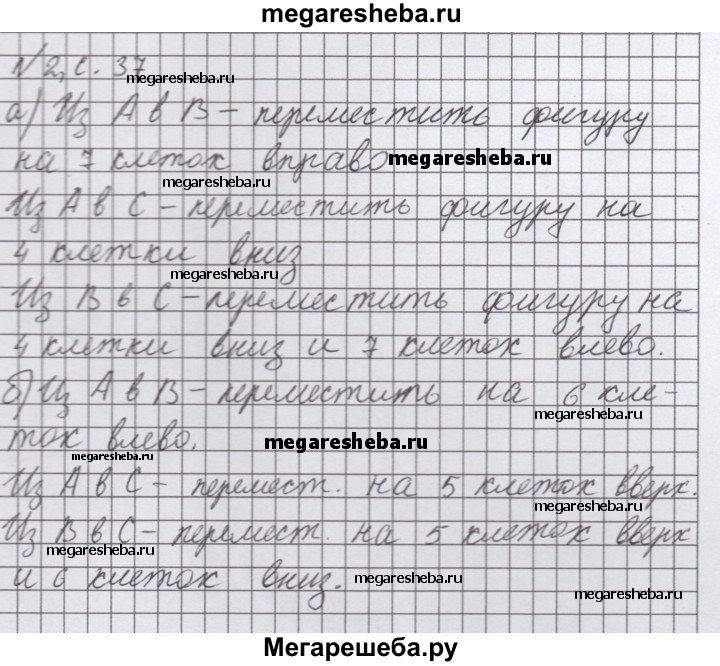 megaresheba.ru
№2, с. 37
megaresheba.ru
а) Из А в В – переместить фигуру
на 7 клеток вправо megaresheba.ru
megaresheba.ru
Из А в С – переместить фигуру на
4 клетки вниз
megaresheba.ru
Из В в С – переместить фигуру на
4 клетки вниз и 7 клеток влево.
б) Из А в В – переместить на 6 кле-
megaresheba.ru
ток влево. megaresheba.ru
megaresheba.ru
Из А в С – перемест. на 5 клеток вверх.
megaresheba.ru
Из В в С – перемест. на 5 клеток вверх
megaresheba.ru
и 6 клеток вниз. megaresheba.ru
Мегарешеба.ру